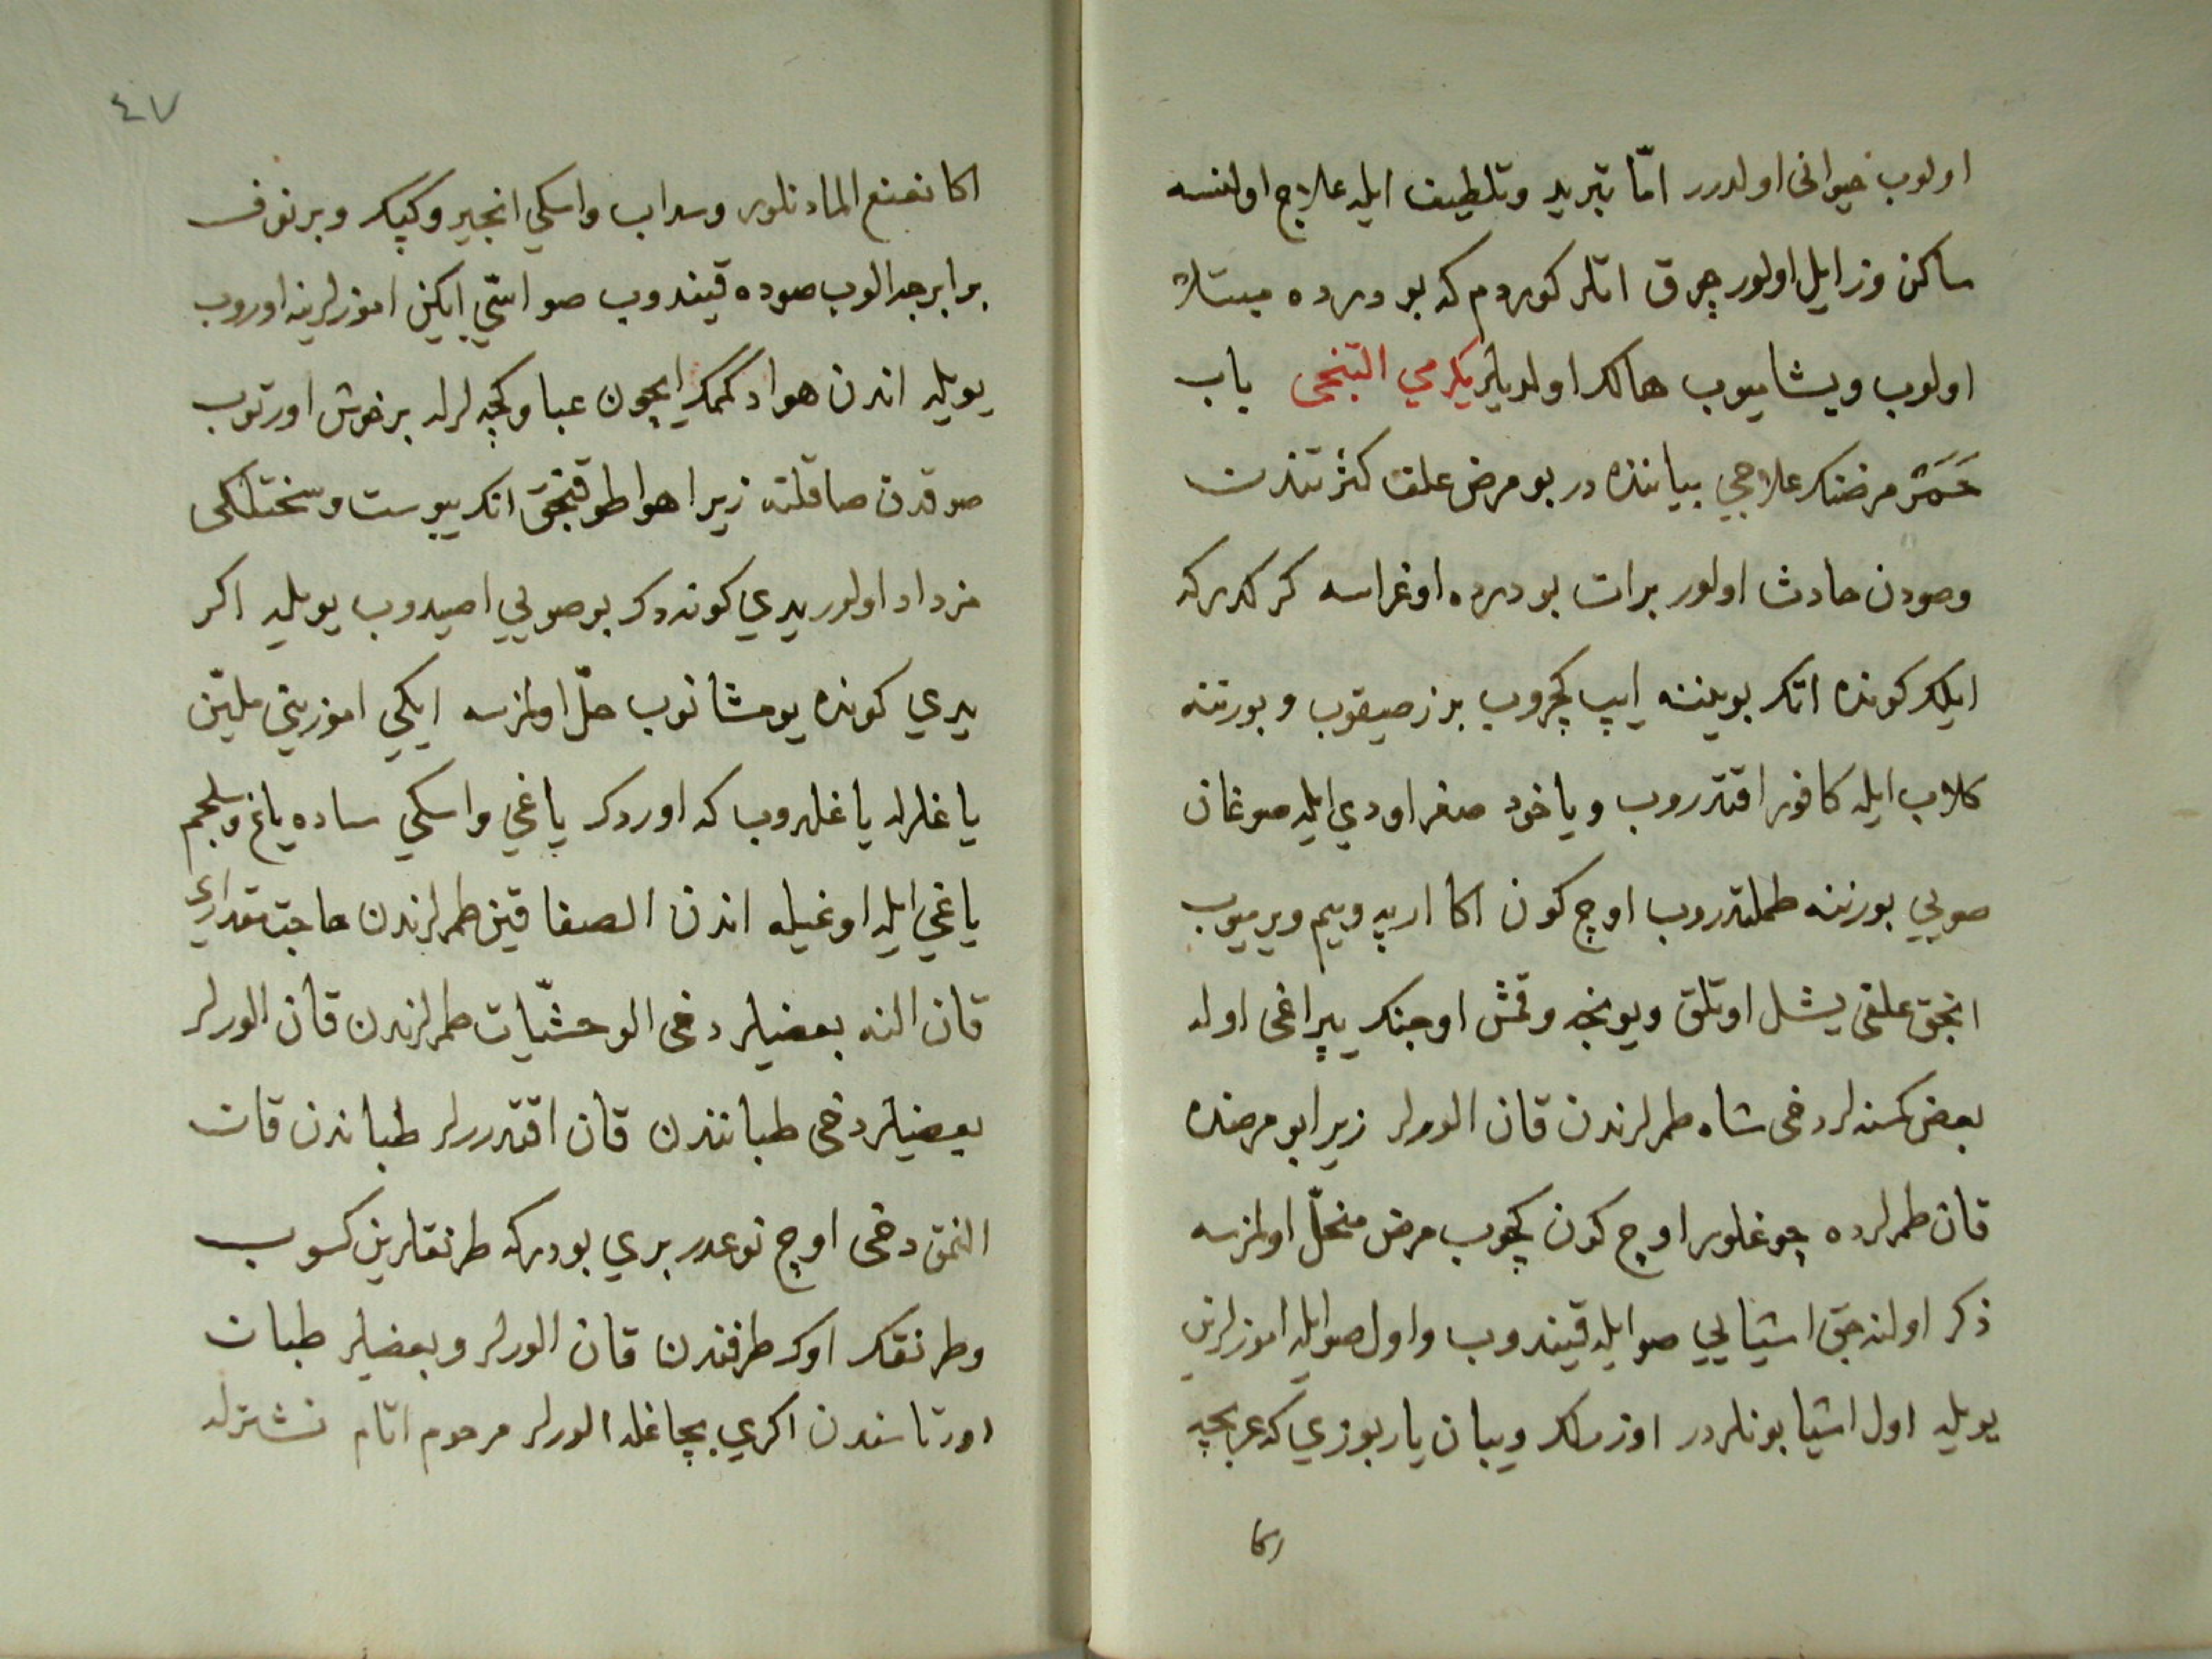 اولوب حيوانى اولدرر امّا تبريد وتلطيف ايله علاج اولنسه
ساكن وزايل اولور چوق اتلر كوردم كه بو درده مبتلا
اولوب ويشاميوب هالك اولديلر يكرمي التنجى باب
حَمَر مرضنك علاجي بياننده در بو مرض علف كثرتندن
وصودن حادث اولور برات بو درده اوغراسه كركدركه
ايلك كونده اتك بويننه ايپ كچروب بزز صيقوب و بورننه
كلاب ايله كافور اقتدروب وياخود صغر اودي ايله صوغان
صويي بورننه طملتدروب اوچ كون اكا ارپه ويم ويرميوب
انجق علفى يشل اوتلق ويونجه وقمش اوجنك يپراغى اوله
بعض كمسنه لر دخى شاه طمرلرندن قان الورلر زيرا بو مرضده
قان طمرلرده چوغلور اوچ كون كچوب مرض منحلّ اولمزسه
ذكر اولنه جق اشيايي صو ايله قيندوب و اول صو ايله اموزلرين
يويله اول اشيا بونلردر اوزرلك ويبان ياربوزي كه عربجه
اكا
٤٧
اكا نعنع الما دنلور وسداب واسكي انجير وكپك وبرنوف
برابرجه الوب صوده قيندوب صو اسّي ايكن اموزلرينه اوروب
يويله اندن هوا دكممك ايچون عبا وكچه لرله برخوش اورتوب
صوقدن صاقلنه زيرا هوا طوقنجق انك يبوست وسختلكى
مزداد اولور يدي كوندك بو صويي اصيدوب يويله اكر
يدي كونده يومشانوب حلّ اولمزسه ايكي اموزيني مليّن
ياغلرله ياغليوب كه اوردك ياغي واسكي ساده ياغ وبلجم
ياغي ايله اوغيله اندن الصفاقين طمرلرندن حاجت مقداري
قان النه بعضيلر دخى الوحشيّات طمرلرندن قان الورلر
بعضيلر دخى طباننندن قان اقتدررلر طباندن قان
النمق دخى اوچ نوعدر بري بودركه طرنقلرين كسوب
وطرنقك اوك طرفندن قان الورلر وبعضيلر طبان
اورتاسندن اكري بچاغله الورلر مرحوم اتام نشترله